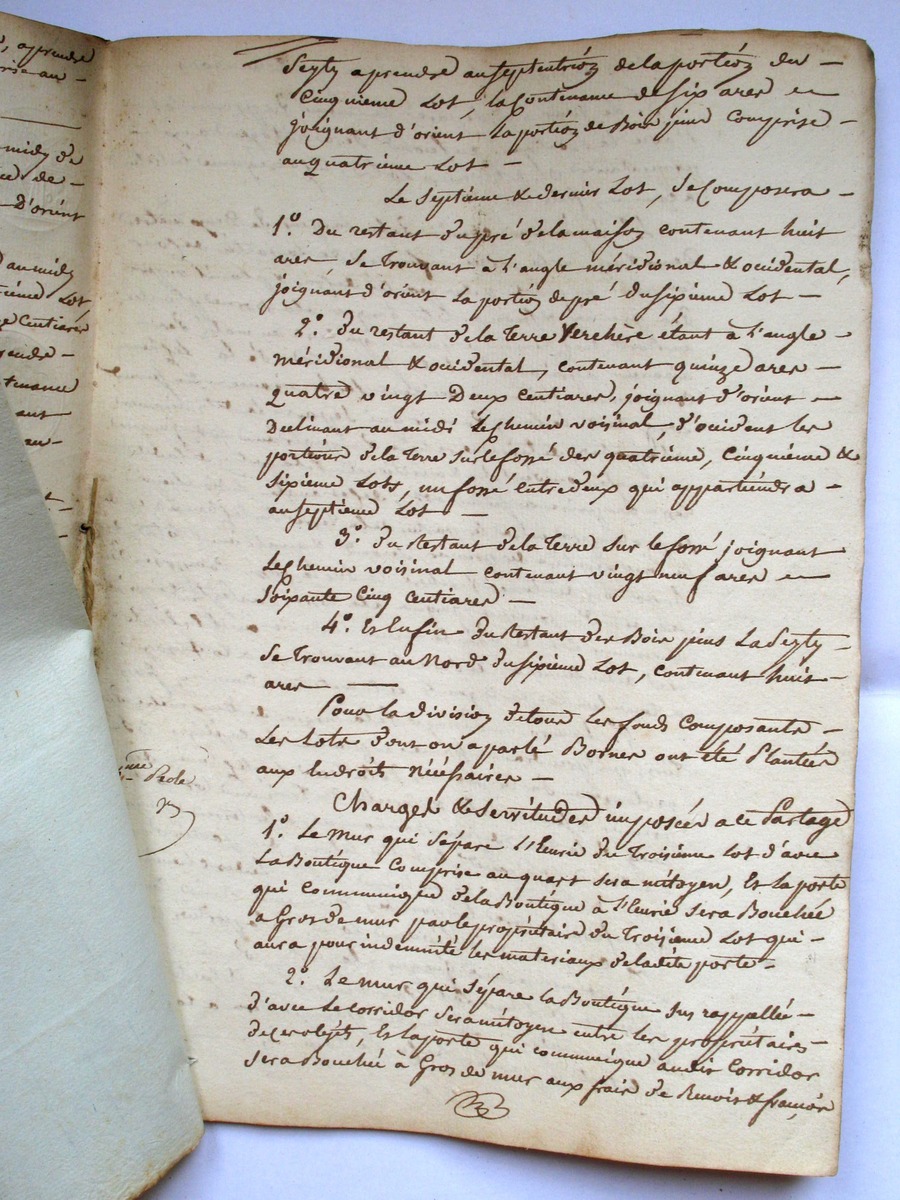 , aprendre
rise au -
midy de
de -
D'orient
au midy
ième Lot,
Centiares
rendre -
tenance
ant
au -
Seyty a prendre au septentrion de la portion du -
Cinquieme Lot, la Contenance de six ares en
joignant d'orient la portion de Bois jeune comprise -
au quatrieme Lot -
Le septieme & dernier Lot, se Composera -
1.° Du restant du pré de la maison contenant huit
ares, se trouvant à l'angle méridional & occidental,
joignant d'orient la portion de pré du sixieme Lot -
2.° du restant de la terre Verchère étant à l'angle -
méridional & occidental, contenant quinze ares -
quatre vingt Deux Centiares, joignant d'orient -
Declinant au midi le chemin voisinal, d'occident les
portions de la terre sur le fossé des quatrième, Cinquième &
sixieme Lots, un fossé entre deux qui appartiendra -
au septieme Lot -
3.° du restant de la terre sur le fossé joignant
le chemin voisinal contenant vingt neuf ares en
soixante Cinq Centiares -
4.° Et Enfin du restant des Bois jeunes La Seyty -
se trouvant au Nord du sixieme Lot, contenant huit -
ares -
Pour la division de tous les fonds composants -
les Lots dont on a parlé Bornes ont été Plantées
aux Endroits nécéssaires -
Charges & servitudes imposées a ce Partage
1.° Le mur qui sépare l'Ecurie du troisieme Lot d'avec
la Boutique Comprise au quart sera mitoyen, Et la porte
qui communique de la Boutique à l'Ecurie sera Bouchée
a Gros de mur par le propriétaire du troisieme Lot qui -
aura pour indemnité les materiaux de ladite porte -
2.° Le mur qui sépare la Boutique sus rappellée -
d'avec le corridor sera mitoyen entre les propriétaires -
de ces objets, Et la porte qui communique au dit Corridor
sera Bouchée à Gros de mur aux frais de Benoit & françois